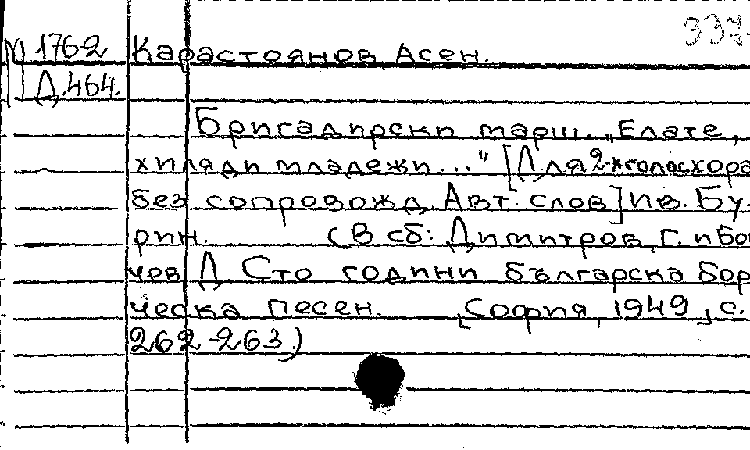 937-
М 1762 Карастоянов Асен.
Д.464.
Бригадирски марш. „Елате,
хиляди младежи..." [Для 2-хголос хора
без сопровожд. Авт. слов] Ив. Бу-
рин. (В сб: Димитров, Г. и Бог
чев Д Сто години българска бор
ческа песен. [София, 1949], с.
262-263)